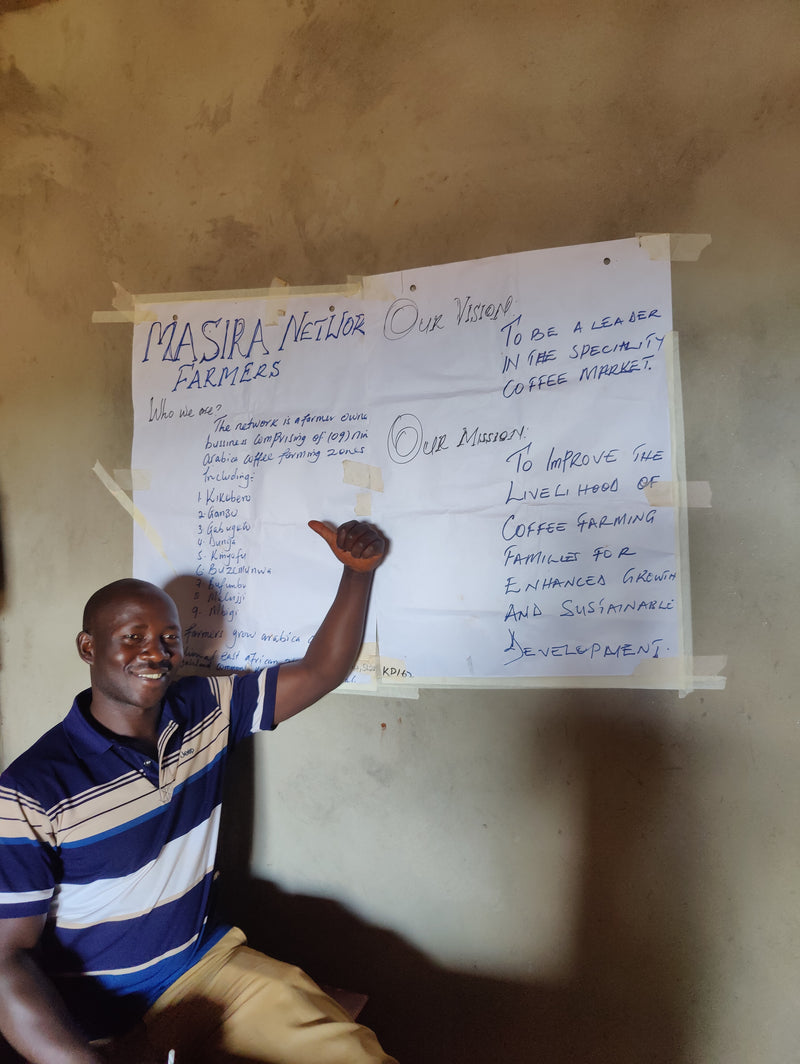 MASIRA NETWOR
FARMERS
Who we are?
The network is a farmer owne
bussiness comprising of (09) nin
Arabica coffee farming zones
Including:
1. Kikubero
2. Gansu
3. Gabugaa
4. Dunga
5. Kinyofu
6. Buzemunwa
7. Bufumbu
8. Malunji
9. Mbigi
Farmers grow arabica
east african
OUR VISION:
TO BE A LEADER
IN THE SPECIALITY
COFFEE MARKET.
OUR MISSION:
TO IMPROVE THE
LIVELIHOOD OF
COFFEE FARMING
FAMILIES FOR
ENHANCED GROWTH
AND SUSTAINABLE
DEVELOPMENT.